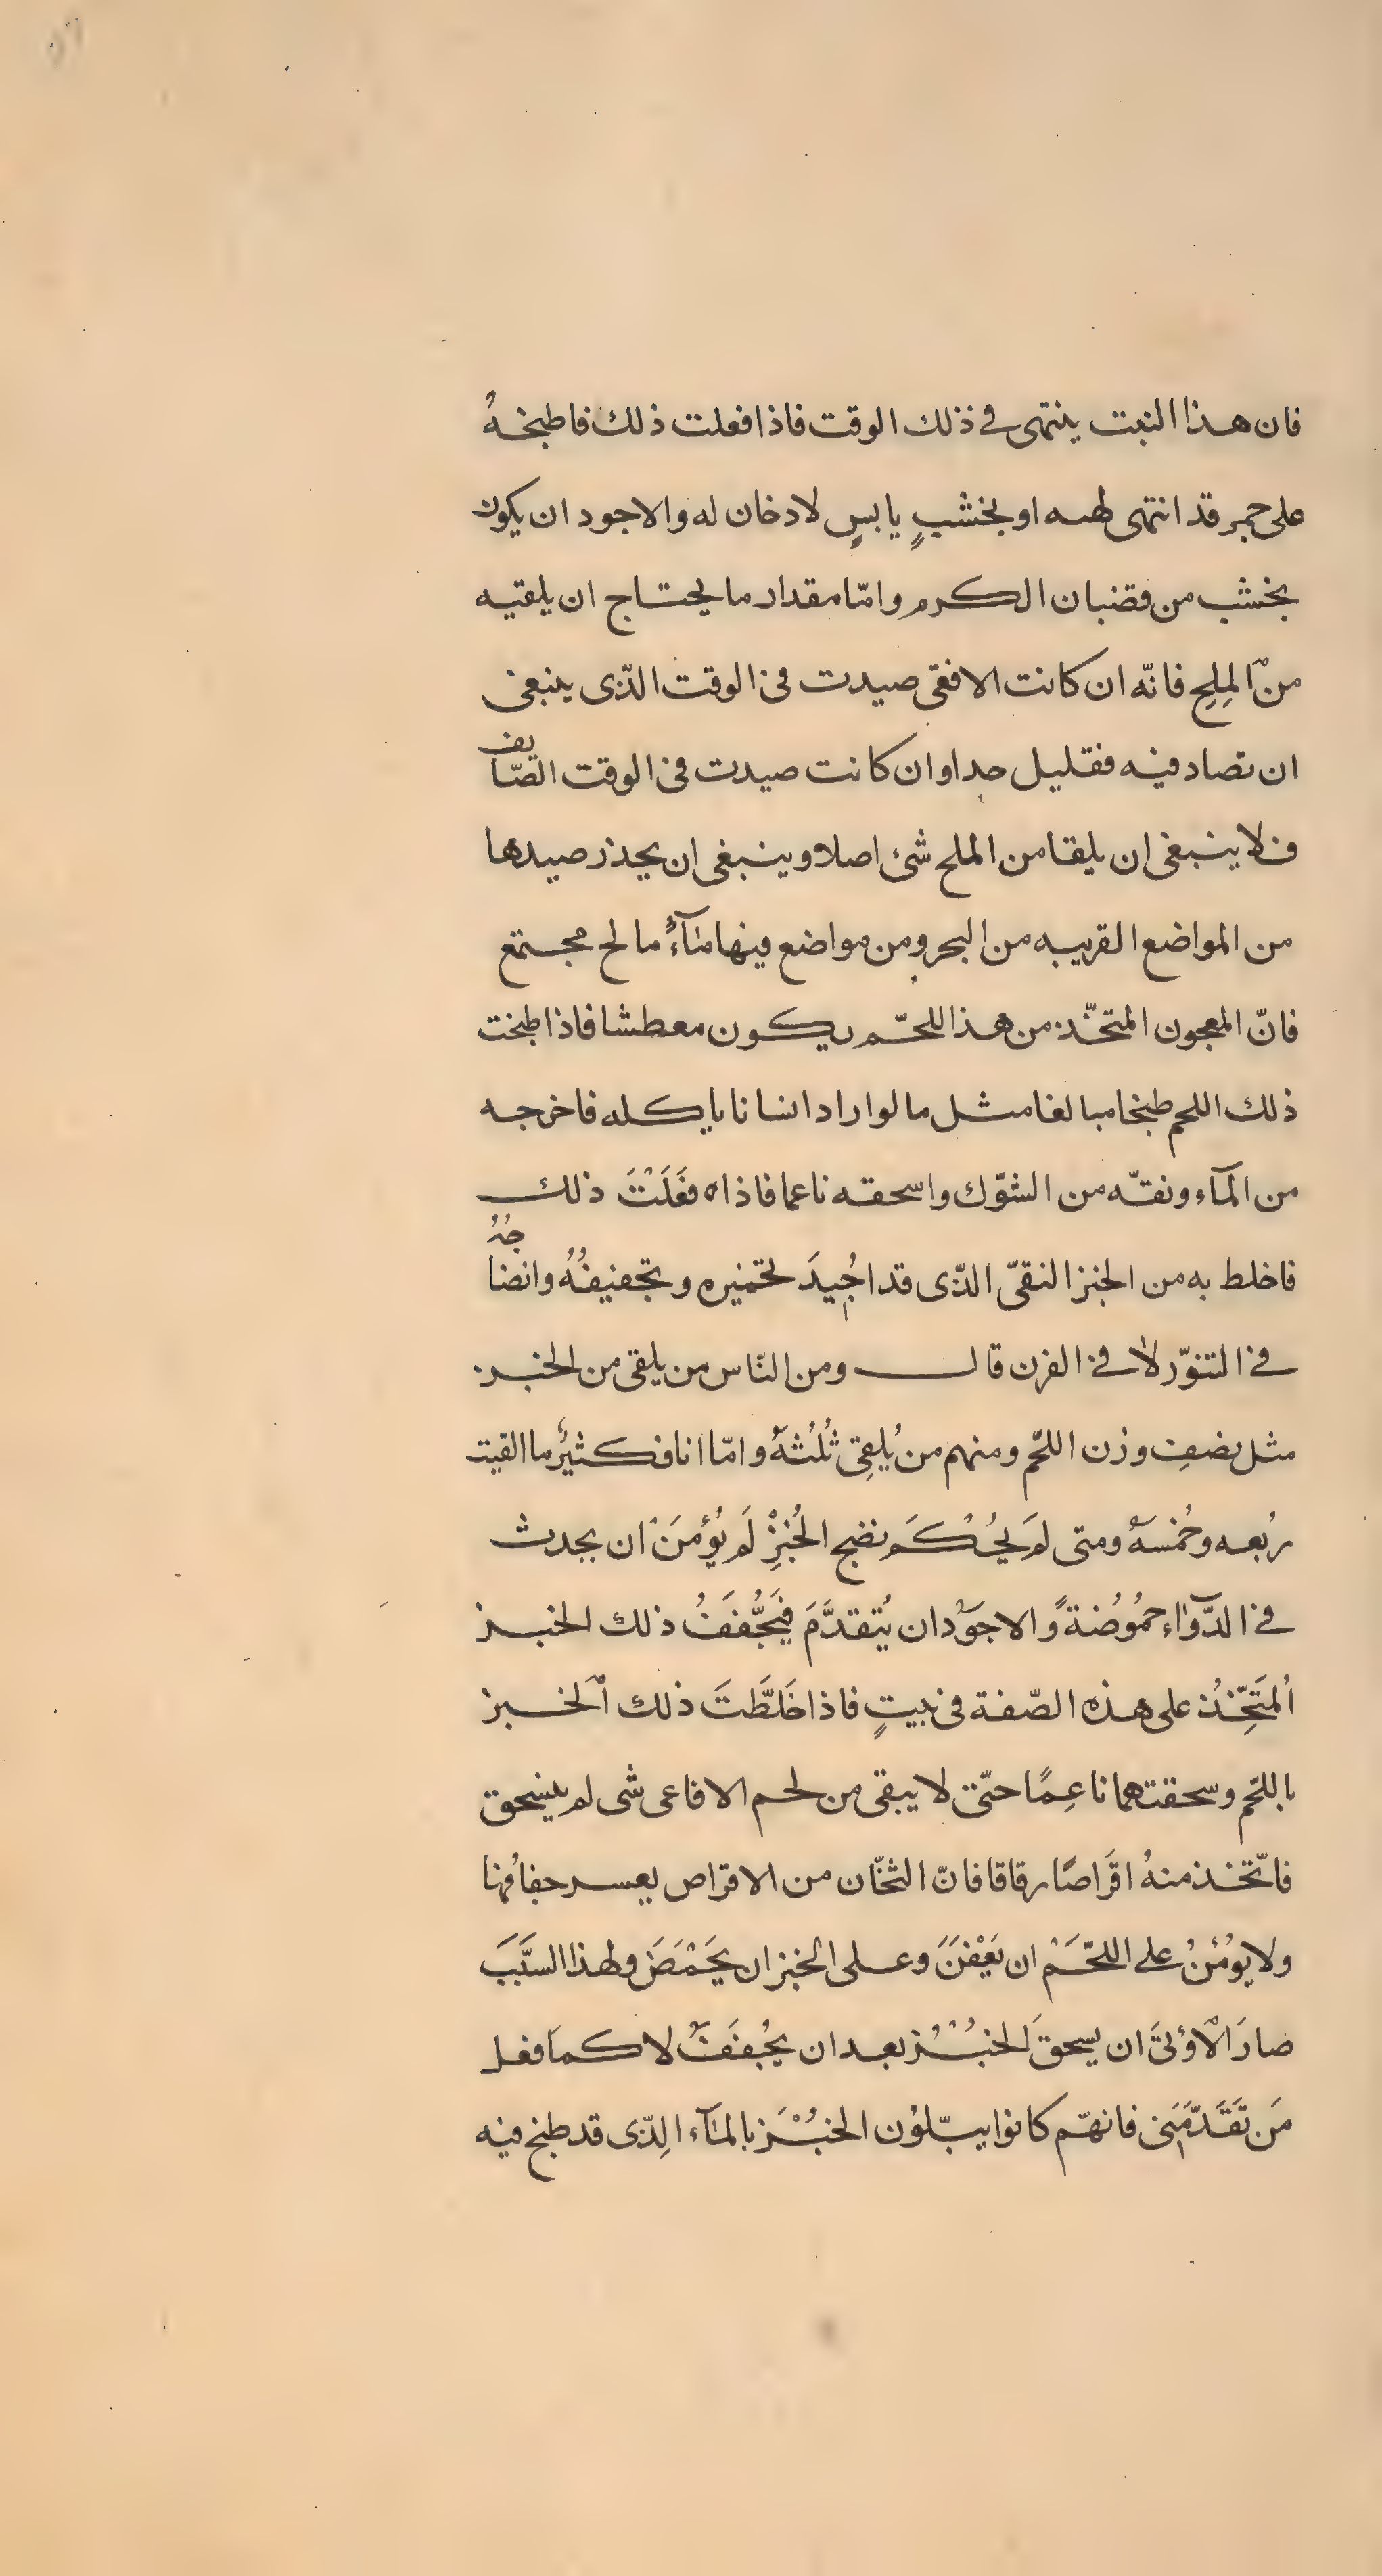 فان هذا النبت ينتهى في ذلك الوقت فاذا فعلت ذلك فاطبخهُ
على جمر قد انتهى لهبه او بخشبٍ يابسٍ لا دخان له والاجود ان يكون
بخشب من قضبان الكرم وامّا مقدار ما يحتاج ان يلقيه
من الملح فانّه ان كانت الافعى صيدت فى الوقت الذّى ينبغى
ان تصاد فيه فقليل جدا وان كانت صيدت فى الوقت الصّايف
فلا ينبغى ان يلقا من الملح شئ اصلا وينبغى ان يحذر صيدها
من المواضع القريبه من البحر ومن مواضع فيها مآءٌ مالح مجتمع
فانّ المعجون المتخّذ من هذا اللحّم يكون معطشا فاذا طبخت
ذلك اللحم طبخا مبالغا مثل ما لو اراد انسانا ياكله فاخرجه
من المآء ونقّه من الشّوك واسحقه ناعما فاذا فعَلَتْ ذلك
فاخلط به من الخبز النقىّ الذّى قد اجُيدَ تخميره وتجفيفُهُ وانضاجُهُ
فى التنوّر لا فى الفرن قال ومن النّاس من يلقى من الخبز
مثل نصفِ وزن اللحّم ومنهم من يُلقِى ثُلُثهُ وامّا انا فكثيرٌ ما القيت
رُبعه وخُمْسهُ ومتى لمَ يُحْكَم نضج الخُبْزِ لَم يُؤمَنَ ان يحدث
فى الدّوَآء حمُوُضةً والاجوَدْ ان يُتقدَّمَ فيَجُّففَُ ذلك الخبز
اْلمتَخِّذُ على هذه الصّفة فى بيتٍ فاذا خَلَطَّتَ ذلك اْلخبز
باللحّم وسحقتهما ناعِمًا حتّى لا يبقى من لحم الافاعى شى لم ينسحق
فاتّخذ منهُ اقَراصًا رقاقا فانّ الثخّان من الاقراص يعسر جفافُها
ولا يوُمَنُ على اللحّمَ ان يَعْفنََ وعلى الخبز ان يَحْمَضَ ولهذا السَّبَبَ
صارَ الاْوْلىَ ان يسحقَ الخبُْز بعد ان يُجففََ لا كما فعل
مَن تقَدّمَنى فانهّم كانوا يبّلوُن الخبُْزَ بالمآء الِذّى قد طبخ فيه